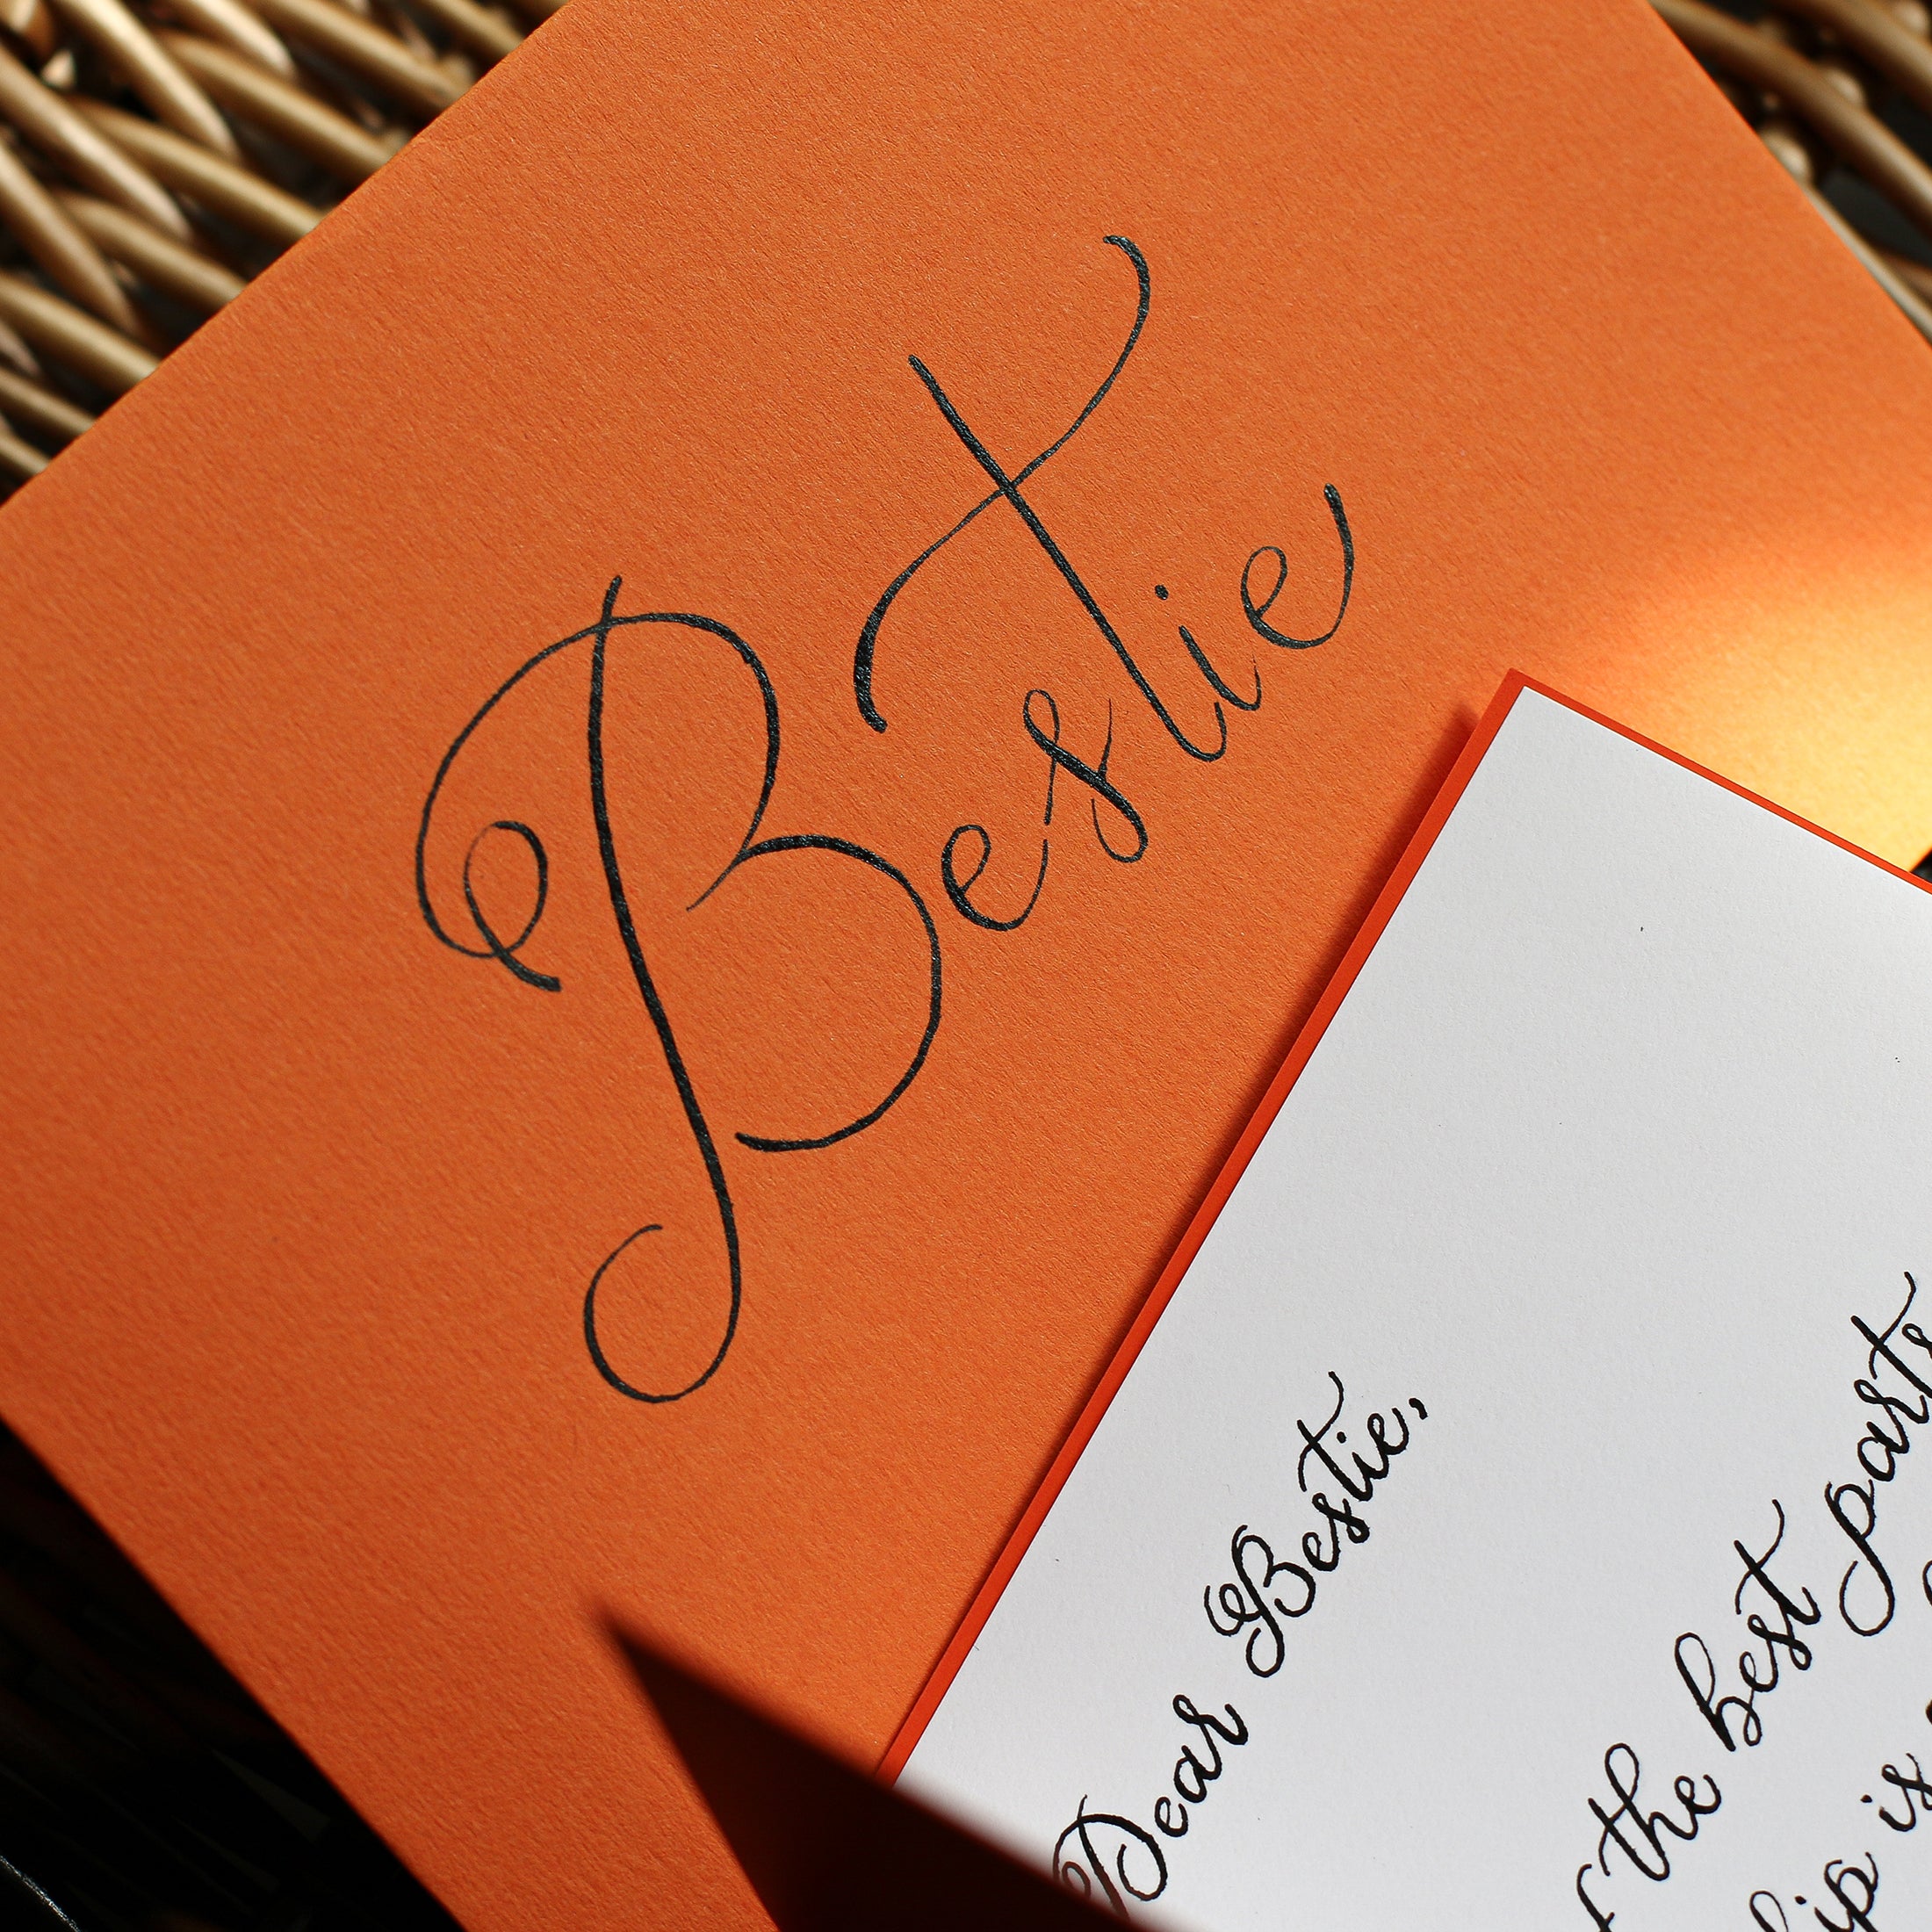 Bestie
Dear Bestie,
the best parts
is